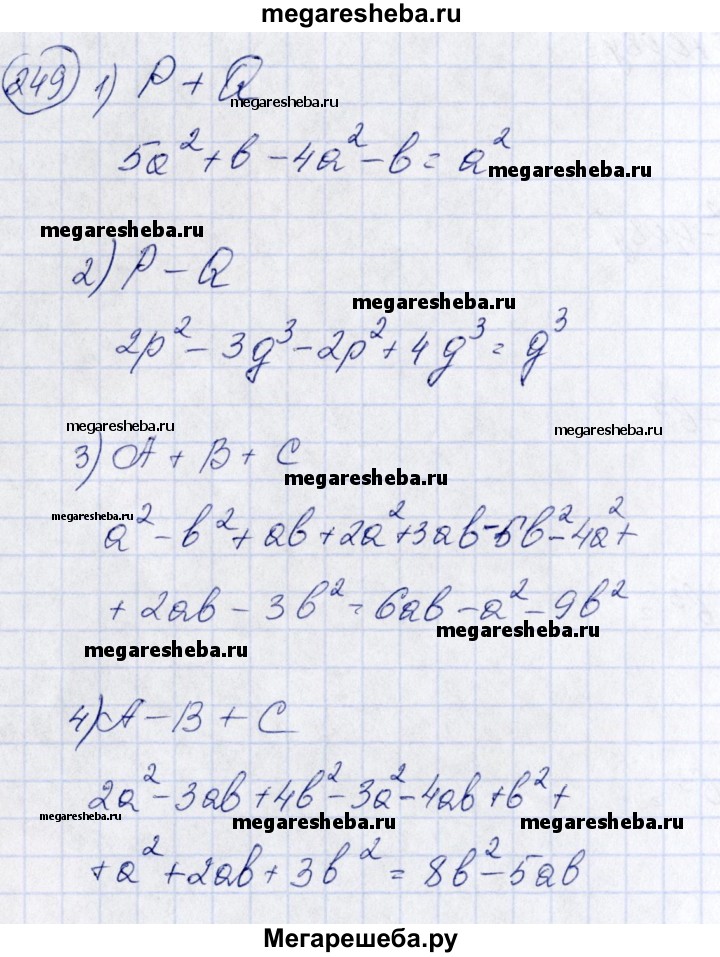 megaresheba.ru
249 1) P + Q
megaresheba.ru
5a² + b - 4a² - b = a²
megaresheba.ru
megaresheba.ru
2) P - Q
megaresheba.ru
2p² - 3g³ - 2p² + 4g³ = g³
megaresheba.ru
megaresheba.ru
3) A + B + C
megaresheba.ru
megaresheba.ru
a² - b² + ab + 2a² + 3ab - 5b² - 4a² +
+ 2ab - 3b² = 6ab - a² - 9b²
megaresheba.ru
megaresheba.ru
4) A - B + C
2a² - 3ab + 4b² - 3a² - 4ab + b² +
megaresheba.ru
megaresheba.ru
megaresheba.ru
+ a² + 2ab + 3b² = 8b² - 5ab
Мегарешеба.ру